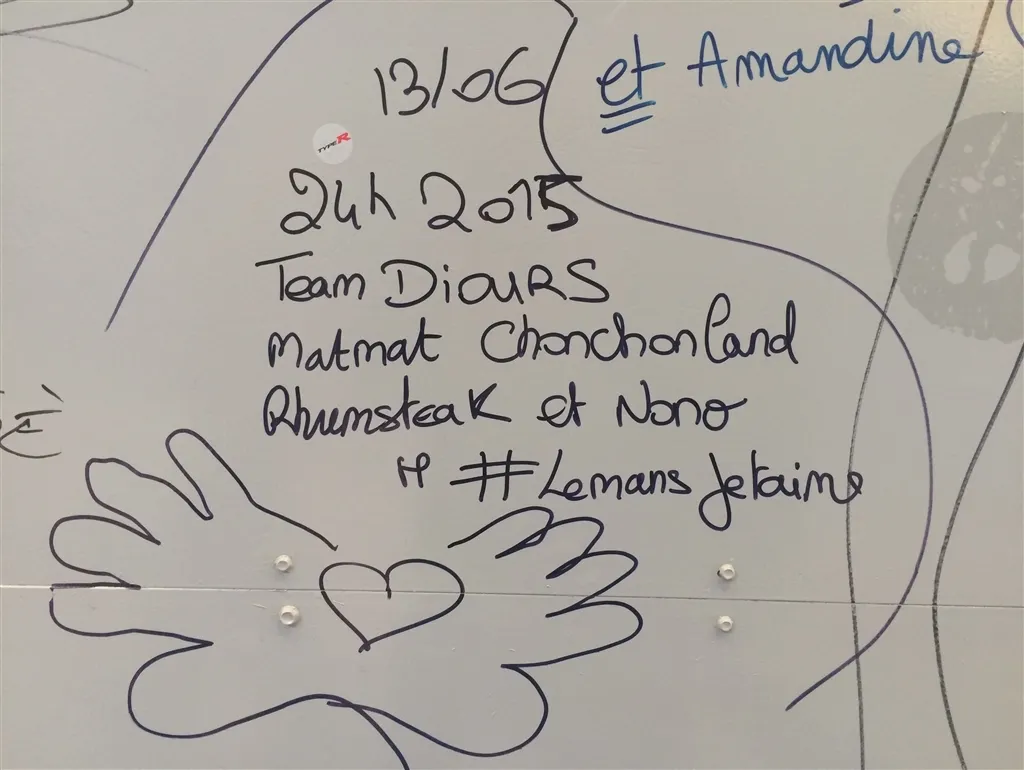 et Amandine
13/06
TYPE R
24h 2015
Team DiouRS
Matmat Chonchonland
Rhumsteak et Nono
#Lemans Jetaime